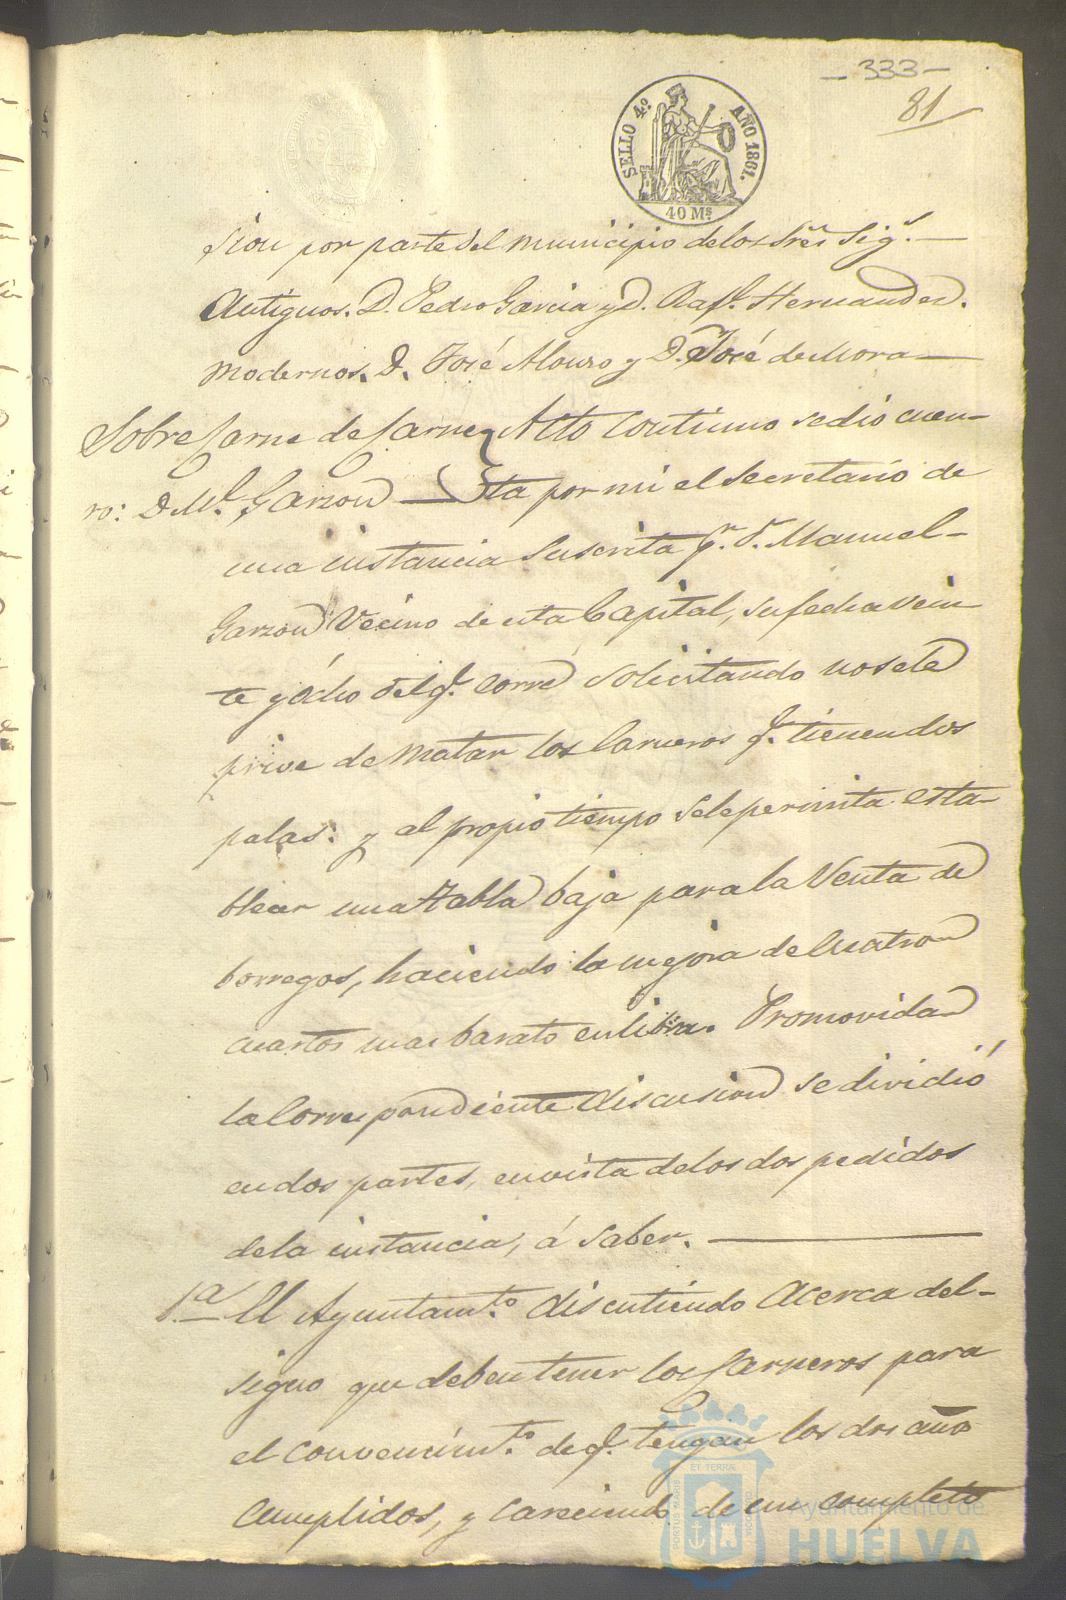 - 333 -
81
SELLO 4º AÑO 1861.
40 Ms
sion por parte del municipio de los Sres Sigs.
Antiguos. D. Pedro Garcia y D. Rafl. Hernandez.
Modernos. D. José Alonso y D. José de Mora
Sobre Carne de Carne
ro: D. Ml. Garzon
Acto continuo se dió cuen-
ta por mi el Secretario de
una instancia suscrita pr. D. Manuel
Garzon Vecino de esta Capital, su fecha vein
te y ócho del q. corre solicitando no se le
prive de matar los Carneros q. tienen dos
palas: y al propio tiempo se le permita esta-
blecer una tabla baja para la Venta de
borregos, haciendo la mejora de Cuatro
cuartos mas barato en libra. Promovida
la Correspondiente discusion se dividió
en dos partes, en vista de los dos pedidos
de la instancia, á saber.
1.a El Ayuntamto. discutiendo acerca del
signo que deben tener los Carneros para
el convencimto. de q. tengan los dos años
cumplidos, y careciendo de un completo
Ayuntamiento de
HUELVA